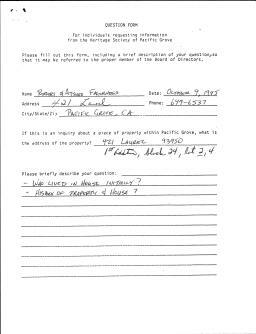 QUESTION FORM
For individuals requesting information
from the Heritage Society of Pacific Grove
Please fill out this form, including a brief description of your question, so
that it may be referred to the proper member of the Board of Directors.
Name Date: October 9, 1995
Address 421 Laurel Phone: 649-6537
City/State/Zip Pacific Grove, CA
If this is an inquiry about a piece of property within Pacific Grove, what is
the address of the property? 421 Laurel 93950
1st Block 24, lot 2, 4
Please briefly describe your question:
- Who lived in house initially?
- History of property & house?